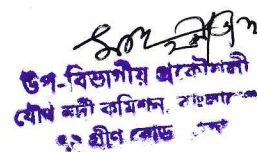 উপ-বিভাগীয় প্রকৌশলী
যৌথ নদী কমিশন, বাংলাদেশ
৭২ গ্রীণ রোড ঢাকা